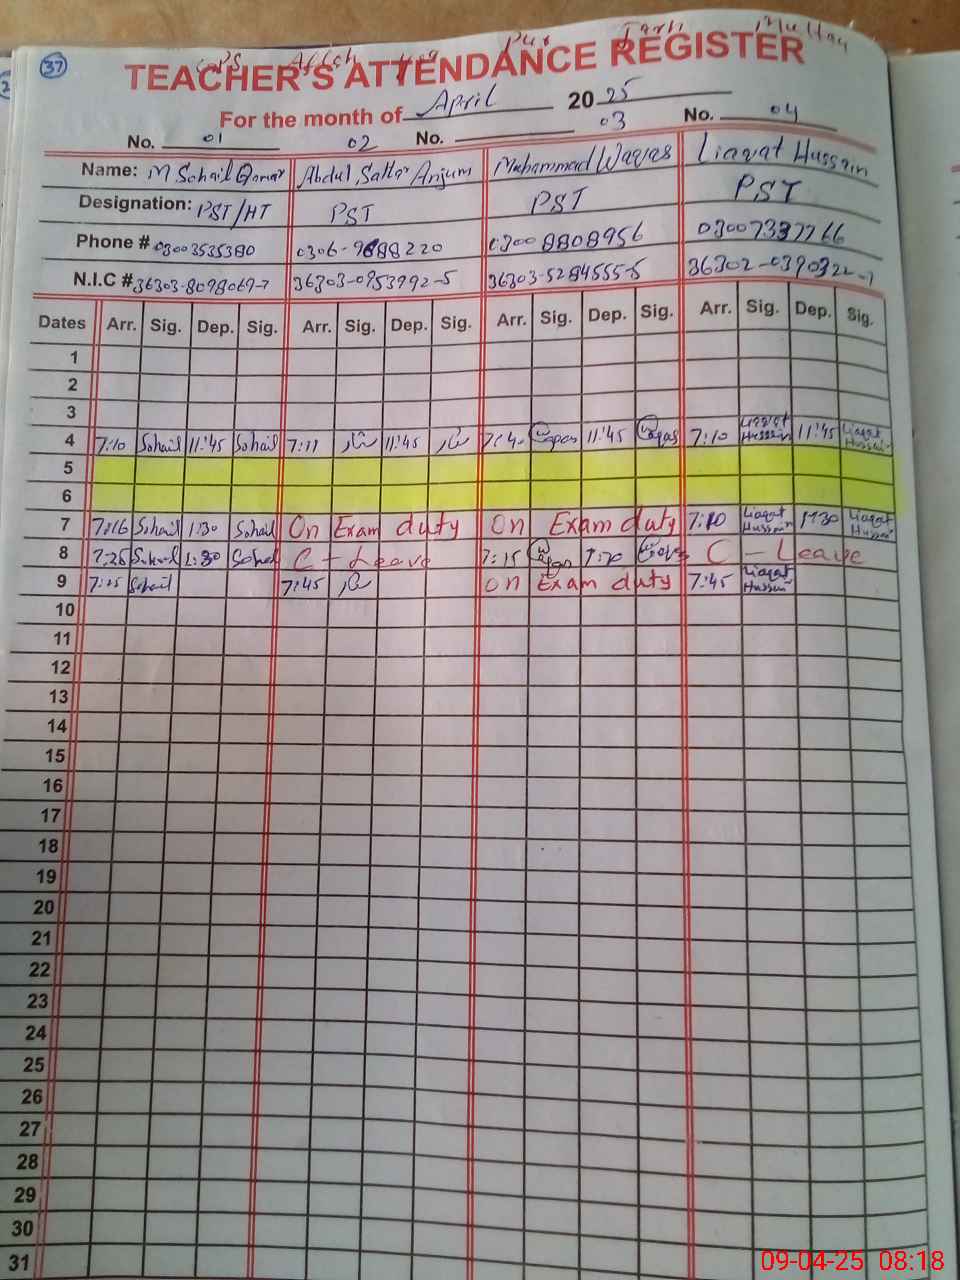 37
TEACHER'S ATTENDANCE REGISTER
For the month of April 2025
No. 01 02 No. 03 No. 04
Name: M Sohail Qamar Abdul Sattar Anjum Muhammad Waqas Liaqat Hussain
Designation: PST/HT PST PST PST
Phone # 03003535380 0306-9688220 03008808956 03007337766
N.I.C # 36303-8098069-7 36303-0953992-5 36303-5284555-5 36302-0390322-7
Dates Arr. Sig. Dep. Sig. Arr. Sig. Dep. Sig. Arr. Sig. Dep. Sig. Arr. Sig. Dep. Sig.
1
2
3
4 7:10 Sohail 11:45 Sohail 7:11 ستار 11:45 ستار 7:40 Waqas 11:45 Waqas 7:10 Liaqat Hussain 11:45 Liaqat Hussain
5
6
7 7:16 Sohail 1:30 Sohail On Exam duty On Exam duty 7:10 Liaqat Hussain 1:30 Liaqat Hussain
8 7:25 Sohail 1:30 Sohail C - Leave 7:15 Waqas 1:30 Waqas C - Leave
9 7:25 Sohail 7:45 ستار On Exam duty 7:45 Liaqat Hussain
10
11
12
13
14
15
16
17
18
19
20
21
22
23
24
25
26
27
28
29
30
31
09-04-25 08:18